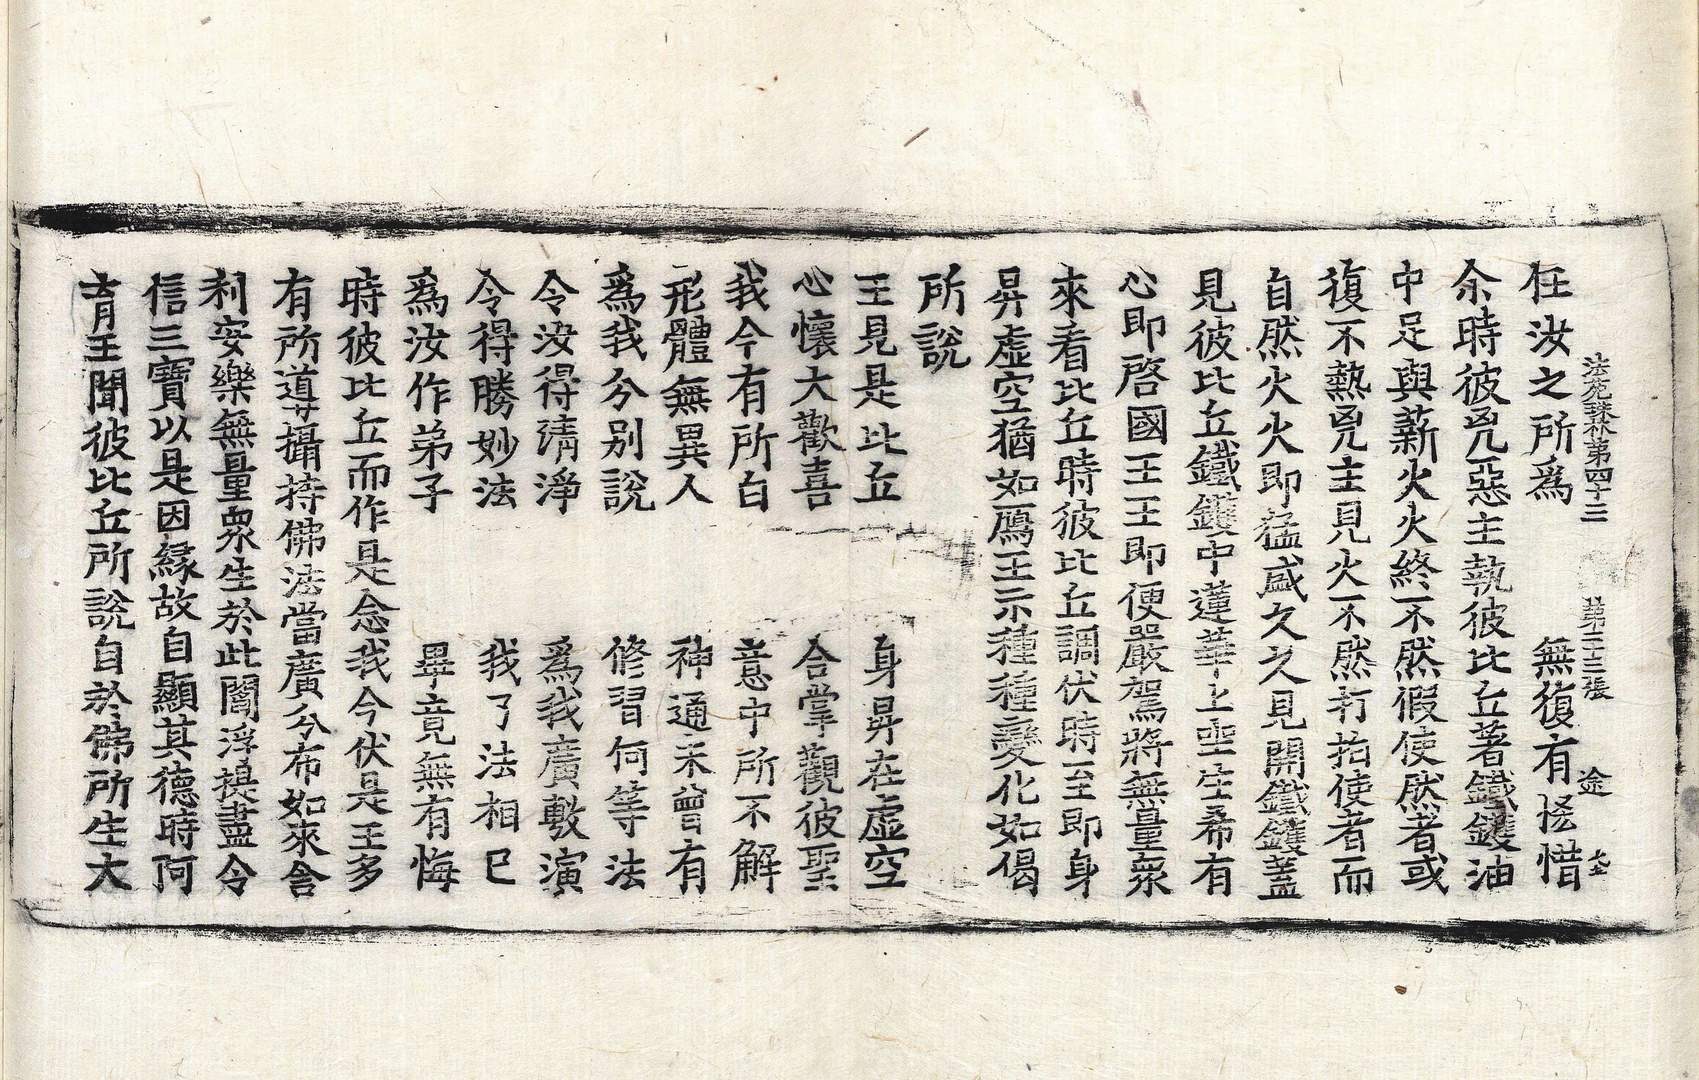 任汝之所為　無復有悋惜
法苑珠林第四十三　第二十三張　途
尒時彼兇惡主執彼比丘著鐵鑊油
中足與薪火火終不然假使然者或
復不熱兇主見火不然打拍使者而
自然火火即猛盛久久見開鐵鑊蓋
見彼比丘鐵鑊中蓮華上坐生希有
心即啓國王王即便嚴駕將無量衆
來看比丘時彼比丘調伏時至即身
昇虛空猶如鴈王示種種變化如偈
所說
王見是比丘　身昇在虛空
心懷大歡喜　合掌觀彼聖
我今有所白　意中所不解
形體無異人　神通未曾有
為我分別說　修習何等法
令汝得清淨　為我廣敷演
令得勝妙法　我了法相已
為汝作弟子　畢竟無有悔
時彼比丘而作是念我今伏是王多
有所導攝持佛法當廣分布如來舍
利安樂無量衆生於此閻浮提盡令
信三寶以是因緣故自顯其德時阿
育王聞彼比丘所說自於佛所生大